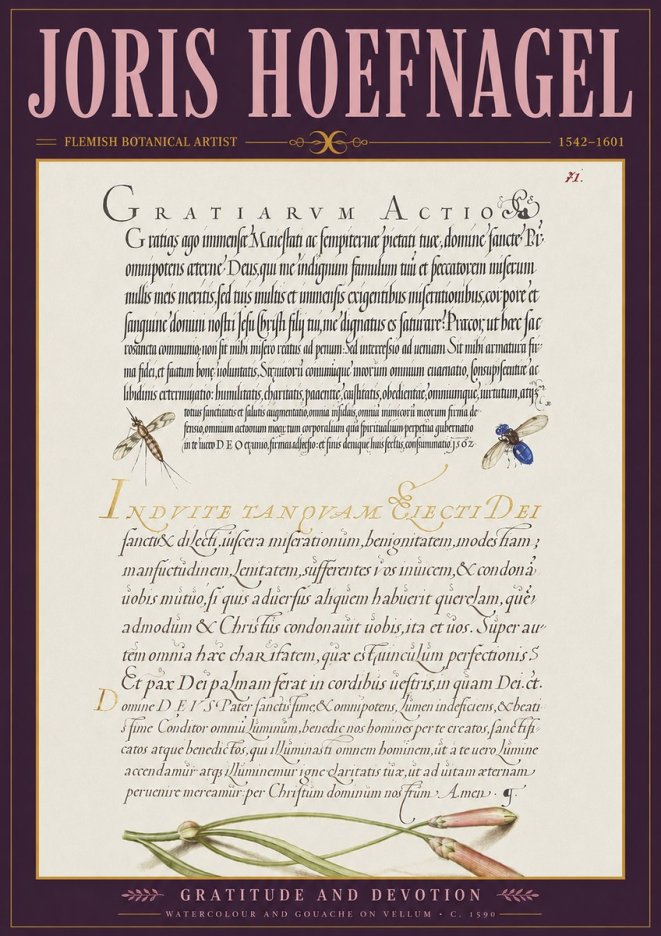 JORIS HOEFNAGEL
FLEMISH BOTANICAL ARTIST
1542–1601
71.
GRATIARVM ACTIO
Gratias ago immensæ Maiestati ac sempiternæ pietati tuæ, domine sancte Pr
omnipotens æterne Deus, qui me indignum famulum tuū et peccatorem miserum
nullis meis meritis, sed tuis multis et immensis exigentibus miserationibus, corpore et
sanguine domini nostri Jesu Christi filij tui, me dignatus es saturare. Præcor, ut hæc sac
rosancta communio, non sit mihi misero reatus ad penam: Sed intercessio ad ueniam Sit mihi armatura fi-
ma fidei, et scutum bonæ uoluntatis, Sit uitiorū cumque morum omnium euacuatio, Consupiscentiæ ac
libidinis exterminatio: humilitatis, charitatis, pacientiæ, castitatis, obedientiæ, omniumque, uirtutum, atq;
totius sanctitatis et salutis augmentatio, omnia insidias, omnia inimicorū meorum firma de-
fensio, omnium actionum mearum tam corporalium quā spiritualium perpetua gubernatio
in te uero DEO et unio, firma adhesio: et finis denique huis felix, consummatio. 1562
INDVITE TANQVAM ELECTI DEI
sancti & dilecti, uiscera miserationum, benignitatem, modestiam;
mansuetudinem, Lenitatem, sufferentes vos inuicem, & condonā
uobis mutuo, si quis aduersus aliquem habuerit querelam, quē
admodum & Christus condonauit uobis, ita et uos. Super au-
tem omnia hæc charitatem, quæ est uinculum perfectionis.
Et pax Dei palmam ferat in cordibus uestris, in quam Dei. et.
Domine DEVS Pater sanctissime, & omnipotens, Lumen indeficiens, & beati
ssime Conditor omniū Luminum, benedic nos homines per te creatos, sanctifi-
catos atque benedictos, qui illuminasti omnem hominem, ut a te uero Lumine
accendamur atqs illuminemur igne claritatis tuæ, ut ad uitam æternam
peruenire mereamur per Christum dominum nostrum. Amen.
GRATITUDE AND DEVOTION
WATERCOLOUR AND GOUACHE ON VELLUM • C. 1590